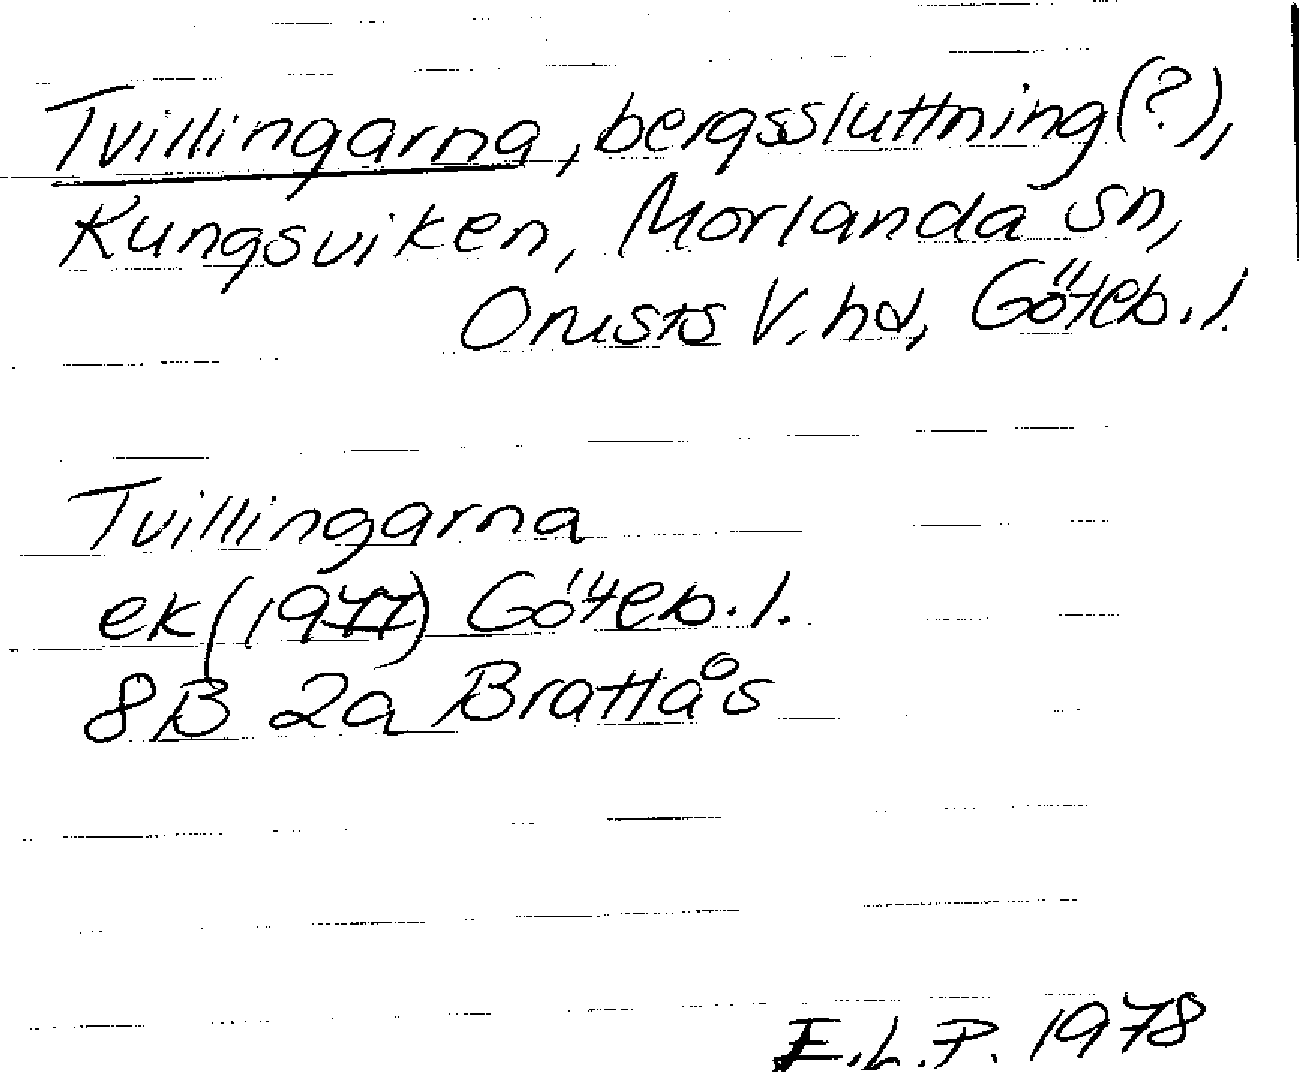 Tvillingarna, bergssluttning(?),
Kungsviken, Morlanda sn,
Orusts V. hd, Göteb. l.
Tvillingarna
ek (1977) Göteb. l.
8B 2a Brattås
E.L.P. 1978